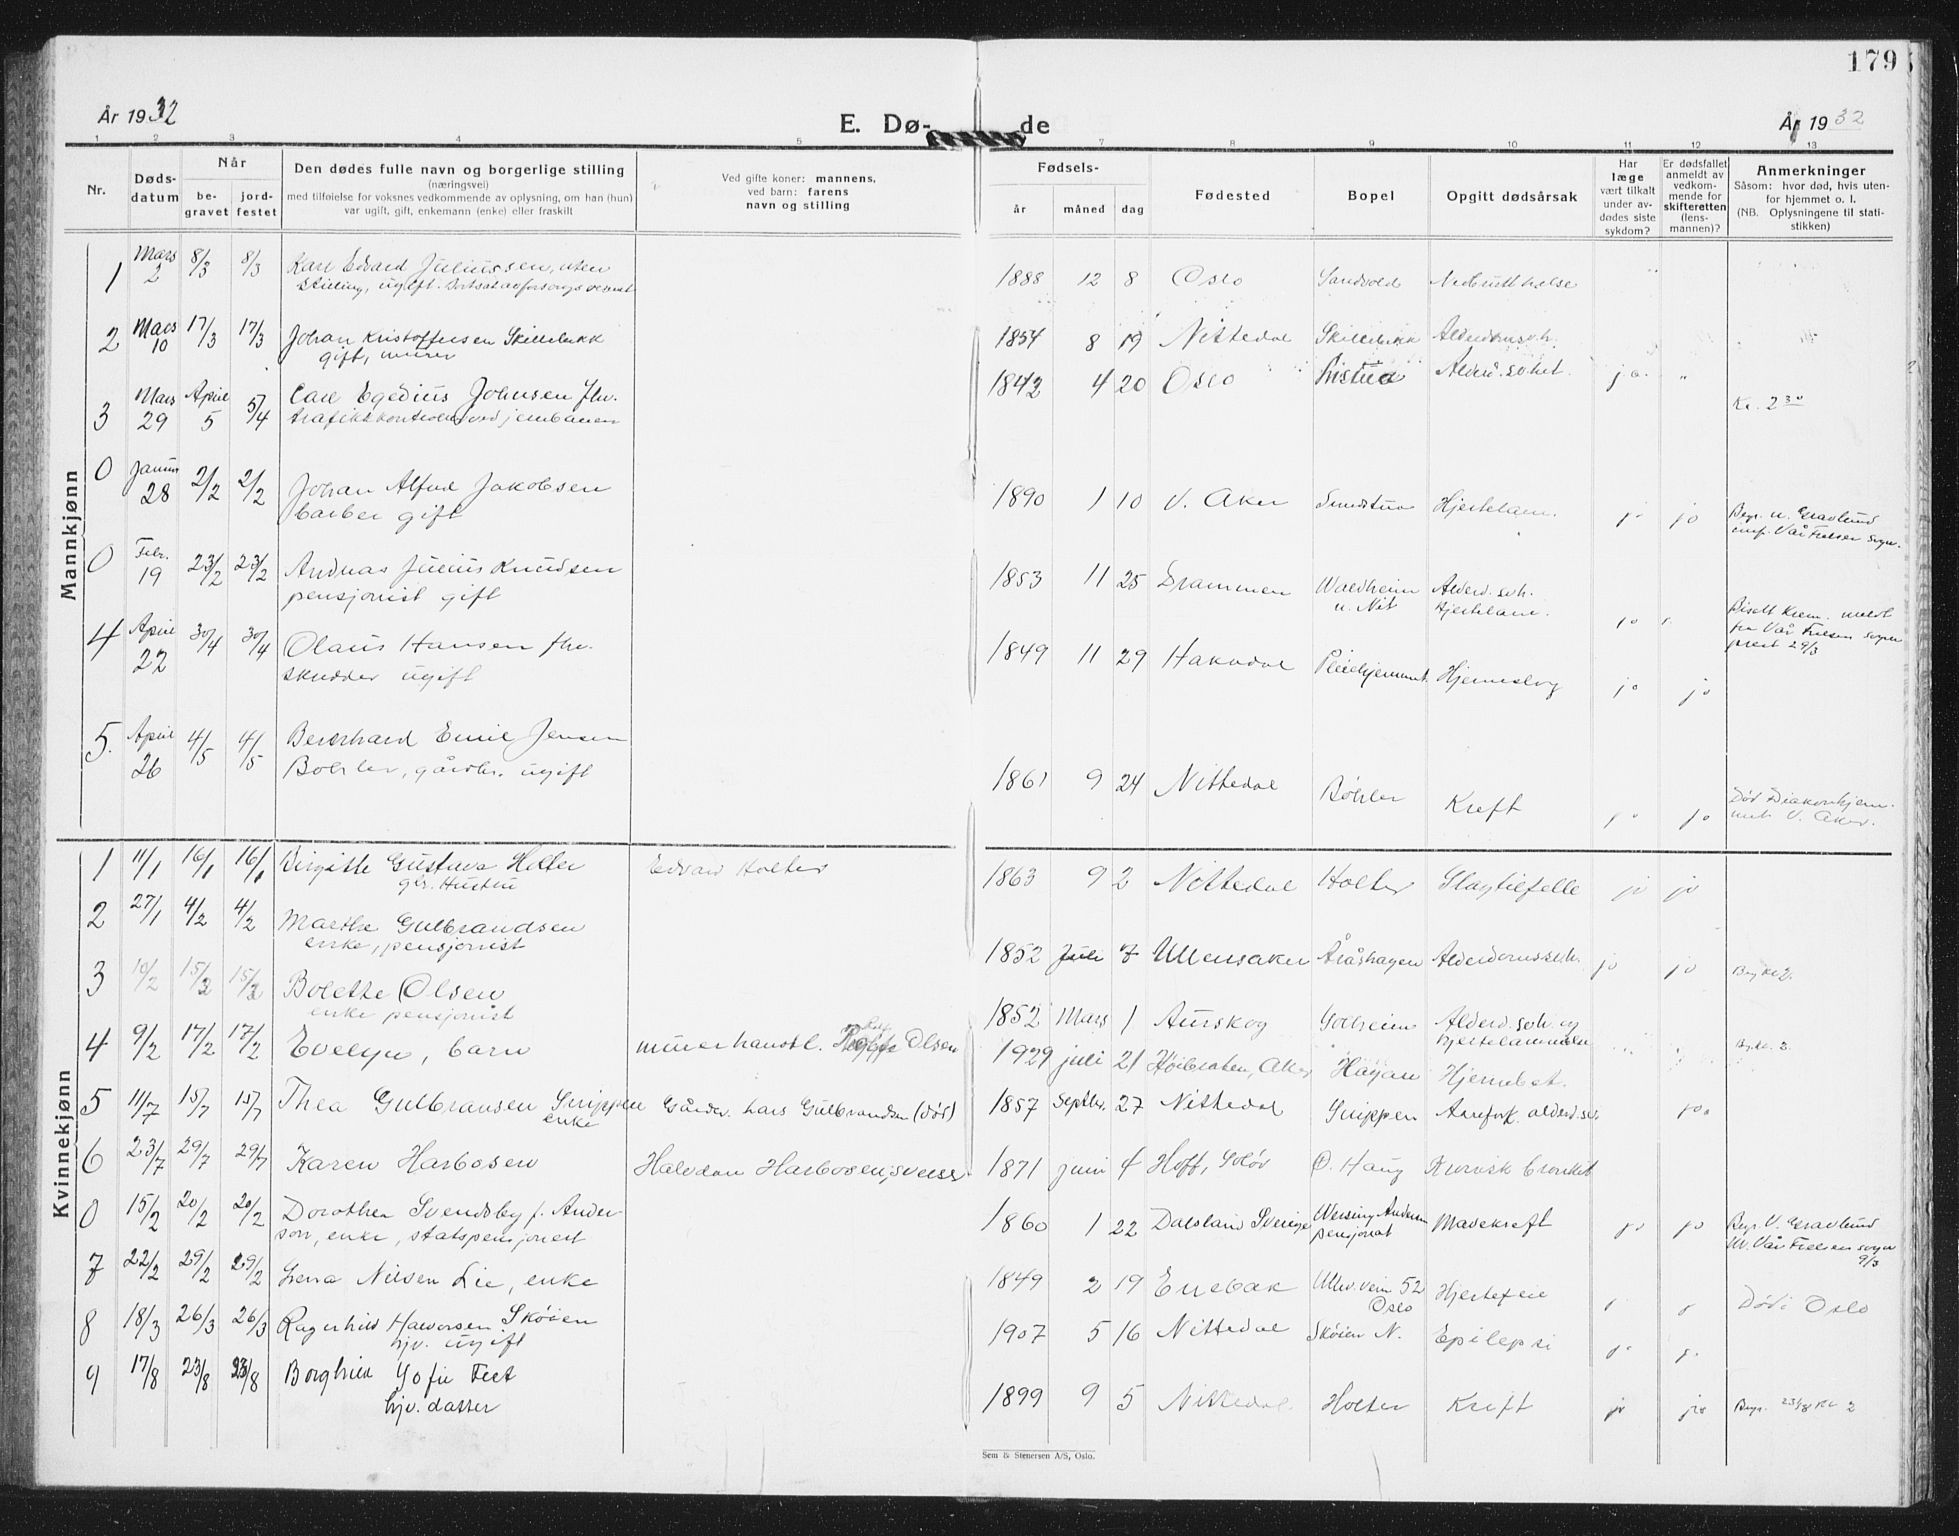 179
År 1932 E. Dø- de År 1932
1 2 3 4 5 7 8 9 10 11 12 13
Nr.
Døds-
datum
Når
be-
gravet
jord-
festet
Den dødes fulle navn og borgerlige stilling
(næringsvei)
med tilføielse for voksnes vedkommende av oplysning, om han (hun)
var ugift, gift, enkemann (enke) eller fraskilt
Ved gifte koner: mannens,
ved barn: farens
navn og stilling
Fødsels-
år måned dag
Fødested
Bopel
Opgitt dødsårsak
Har
læge
vært tilkalt
under av-
dødes siste
sykdom?
Er dødsfallet
anmeldt av
vedkom-
mende for
skifteretten
(lens-
mannen)?
Anmerkninger
Såsom: hvor død, hvis uten-
for hjemmet o. l.
(NB. Oplysningene til stati-
stikken)
Mannkjønn
1 Mars 2 8/3 8/3 Karl Edvard Juliussen, uten 1888 12 8 Oslo Sandvold
stilling, ugift.
2 Mars 10 17/3 17/3 Johan Kristoffersen Skillebekk 1854 8 19 Nittedal Skillebekk Alderdomssvh.
gift, murer
3 Mars 29 April 5 5/4 Carl Egedius Johnsen fhv. 1842 4 20 Oslo Alderd.svhet. ja. "
trafikkkontrolør ved jernbanen Kr. 2 30
0 Januar 28 2/2 2/2 Johan Alfred Jakobsen 1890 1 10 V. Aker Hjertelam. jo jo Begr. v. Gravlund
barber gift Vår Frelser sogn.
0 Febr. 19 23/2 23/2 Andreas Julius Knudsen 1853 11 25 Drammen Waldheim Alderd.svh.
pensjonist gift u. Nit Hjertelam. jo Bisatt Krem. meldt
fra Vår Frelsers sogne
prest 29/3
4 April 22 30/4 30/4 Olaus Hansen fhv. 1849 11 29 Hakadal Pleiehjemmet Hjerneslag jo jo
skredder ugift
5. April 26 4/5 4/5 Bernhard Emil Jensen 1861 9 24 Nittedal Böhler Kreft jo jo Död Diakonhjem-
Bøhler, gårdbr. ugift met V. Aker.
Kvinnekjønn
1 11/1 16/1 16/1 Birgitte Gustava Holter Edvard Holter 1863 9 2 Nittedal Holter Slagtilfelle jo jo
gbr. Hustru
2 27/1 4/2 4/2 Marthe Gulbrandsen 1852 Juli 7 Ullensaker Åråshagen Alderdomssvh. jo jo
enke, pensjonist
3 10/2 15/2 15/2 Bolette Olsen 1852 Mars 1 Aurskog Solheim Alderd.svh. og
enke pensjonist hjertelammelse
4 9/2 17/2 17/2 Evelyn, barn murerhåndtl. Olsen 1929 juli 21 Høibråten, Aker Hagan Hjernebet.
5 11/7 15/7 15/7 Thea Gulbransen Snippen Gårdbr. Lars Gulbrandsen (död) 1857 Septbr. 27 Nittedal Snippen Aarefork. alderd.sv. jo.
enke
6 23/7 29/7 29/7 Karen Harbosen Halvdan Harbosen, sveiser 1871 juni 4 Hoff, Solør Ø. Haug Kronisk bronkit
0 15/2 20/2 20/2 Dorothea Svendsby f. Ander- 1860 1 22 Dalsland Sverige Mavekreft jo jo Begr. V. Gravlund
son, enke, statspensjonist pensjonat Vår Frelsers sogn
9/3
7 22/2 29/2 29/2 Lena Nilsen Lie, enke 1849 2 19 Enebak Ullev.vein 52 Hjertefeil Död i Oslo
Oslo
8 18/3 26/3 26/3 Ragnhild Halvorsen Skøien 1907 5 16 Nittedal Skøien N. Epilepsi
hjv. ugift
9 17/8 23/8 23/8 Borghild Sofie Feet 1899 9 5 Nittedal Holter Kreft jo jo Begr. 23/8 Kr 2
hjv. datter
Sem & Stenersen A/S, Oslo.